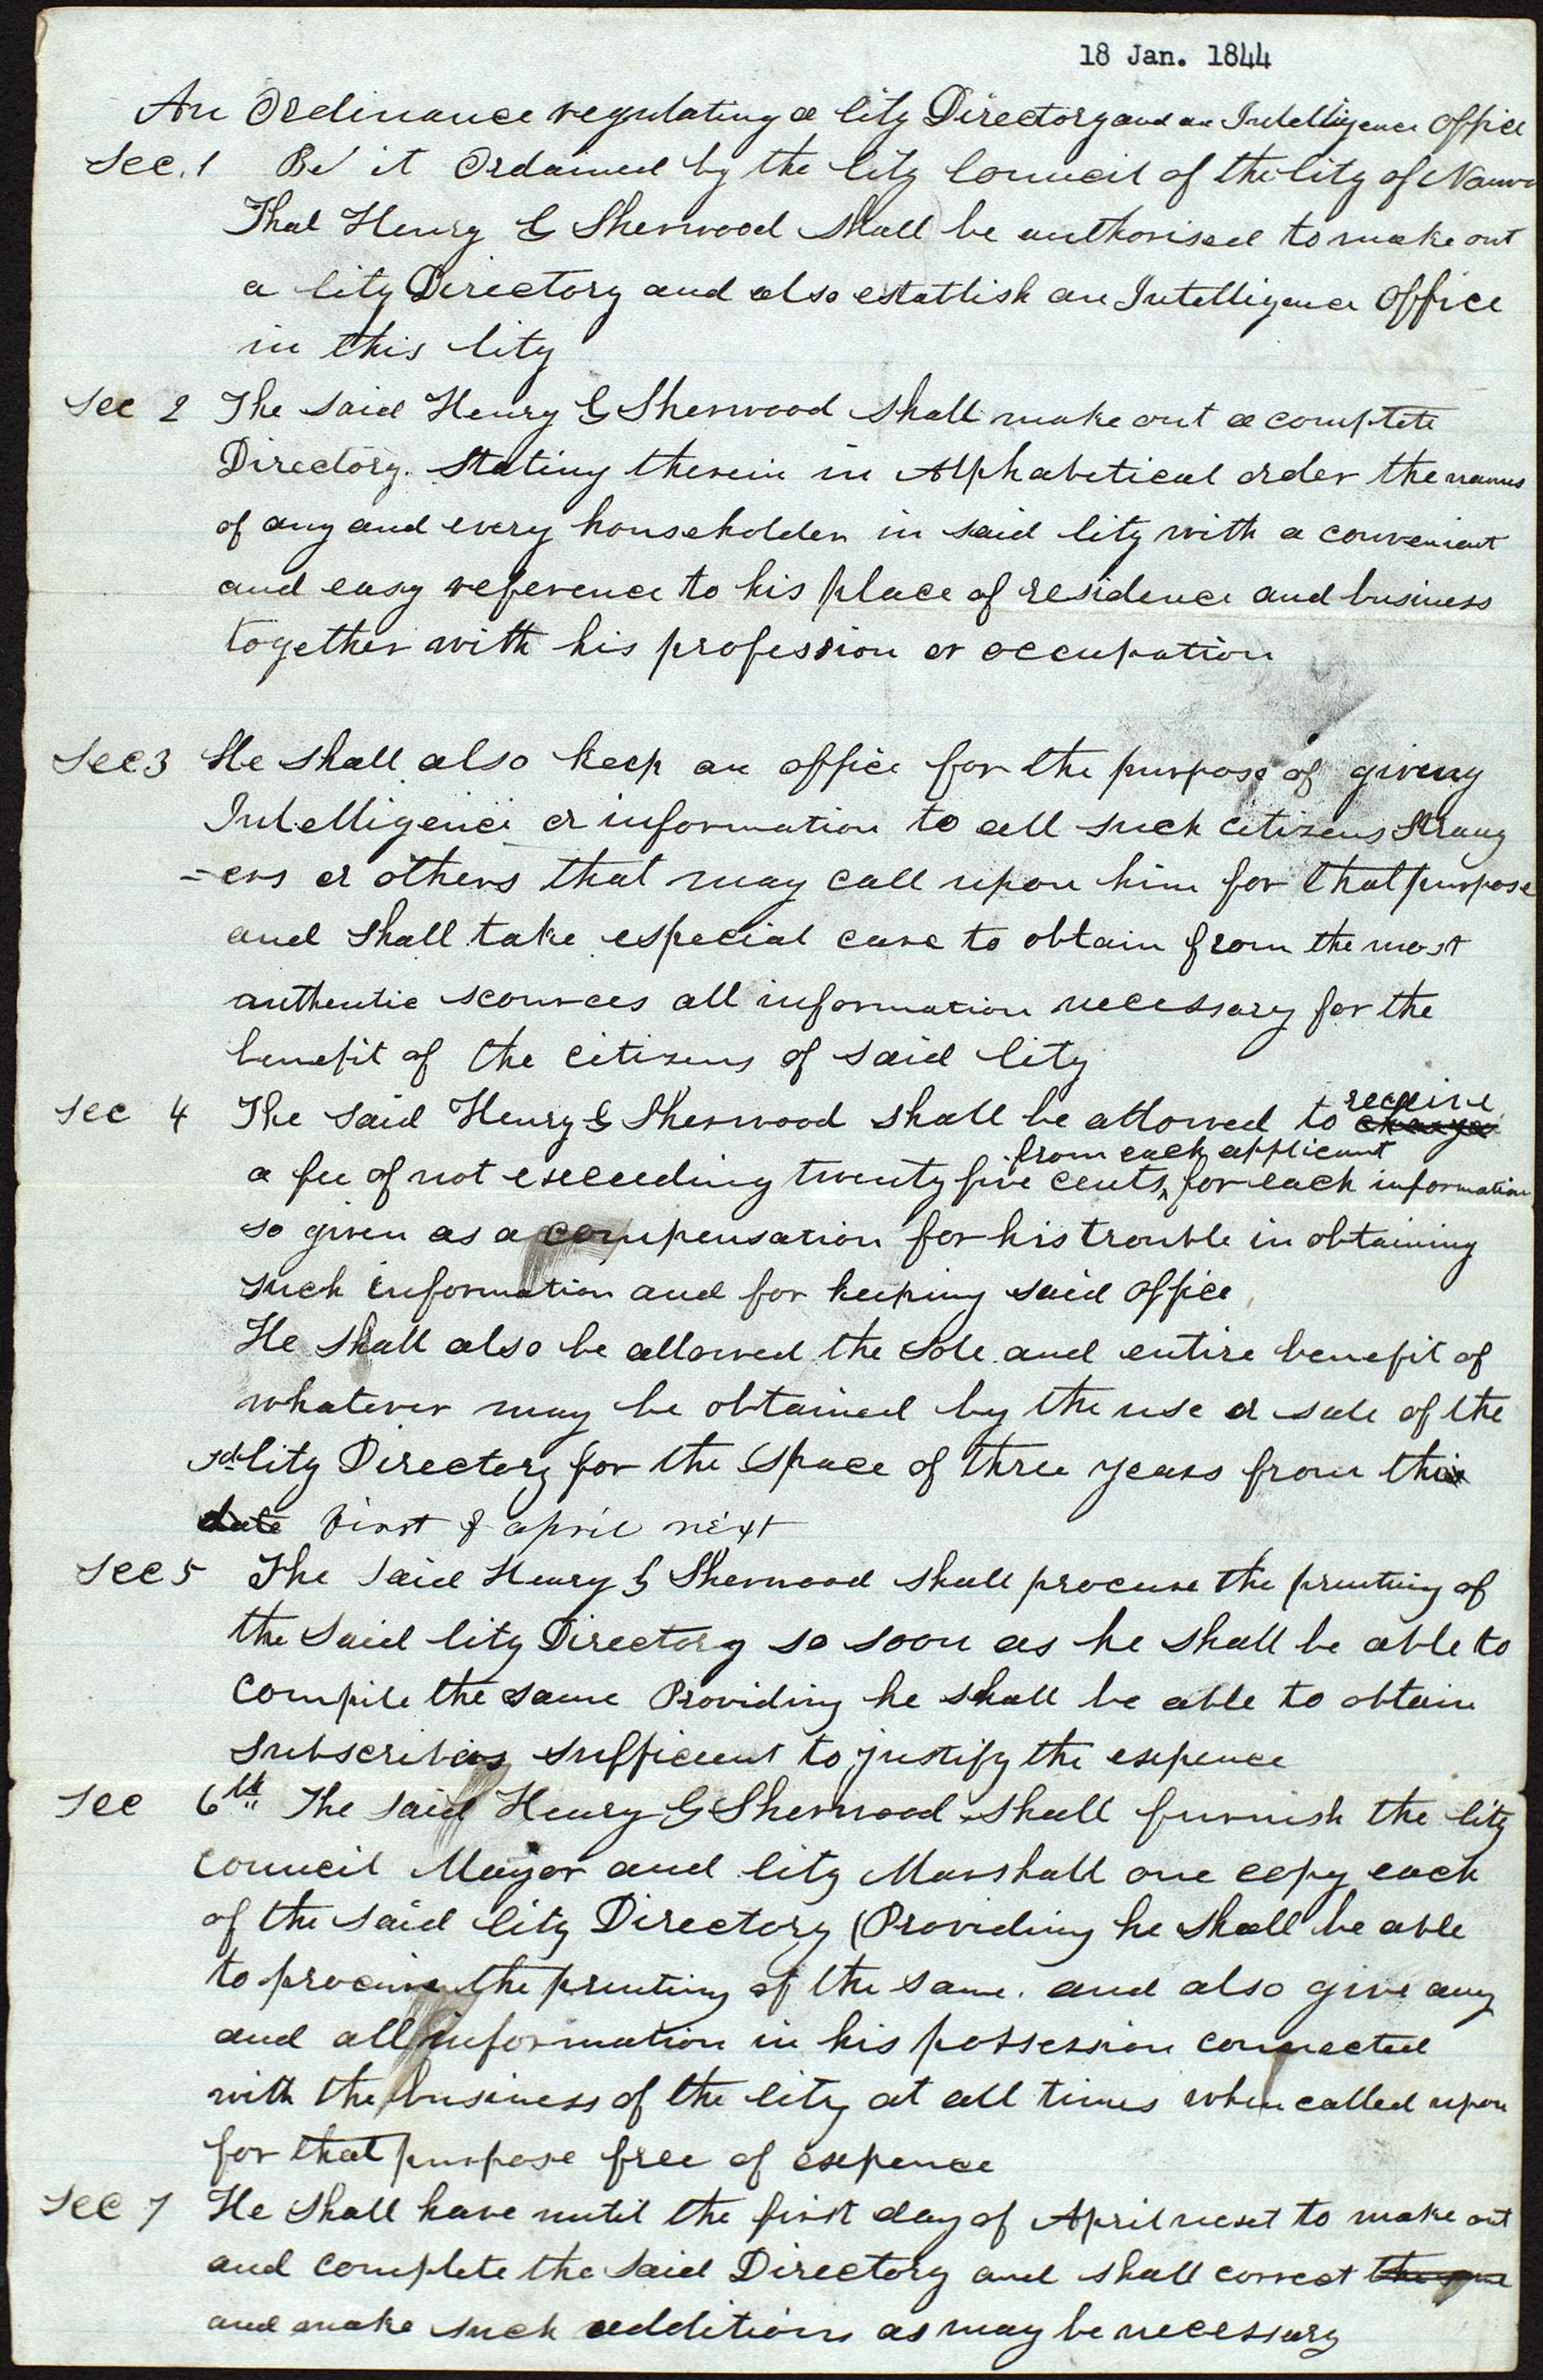 18 Jan. 1844
An Ordinance regulating a City Directory and an Intelligence Office
Sec. 1 Be it Ordained by the City Council of the City of Nauvo
That Henry G Sherwood shall be authorised to make out
a City Directory and also establish an Intelligence Office
in this City
Sec 2 The said Henry G Sherwood shall make out a complete
Directory. stating therein in Alphabetical order the names
of any and every householder in said City with a convenient
and easy reference to his place of residence and business
together with his profession or occupation
Sec 3 He shall also keep an office for the purpose of giveng
Intelligence or information to all such citizens Strang
=ers or others that may call upon him for that purpose
and shall take especial care to obtain from the most
authentic scources all information necessary for the
benefit of the citizens of said City
receive
Sec 4 The said Henry G Sherwood shall be allowed to charge
from each applicant
a fee of not exceeding twenty five cents, for each information
so given as a compensation for his trouble in obtaining
such information and for keeping said office
He shall also be allowed the sole and entire benefit of
whatever may be obtained by the use or sale of the
sd City Directory for the space of three years from this
date first of april next
Sec 5 The said Henry G Sherwood shall procure the printing of
the said City Directory so soon as he shall be able to
compile the same Providing he shall be able to obtain
subscribers sufficient to justify the expence
Sec 6th The said Henry G Sherwood shall furnish the City
Council Mayor and City Marshall one copy each
of the said City Directory (Providing he shall be able
to procure the printing of the same. and also give any
and all information in his possession connected
with the business of the City at all times when called upon
for that purpose free of expence
Sec 7 He shall have until the first day of April next to make out
and complete the said Directory and shall correct the same
and make such additions as may be necessary